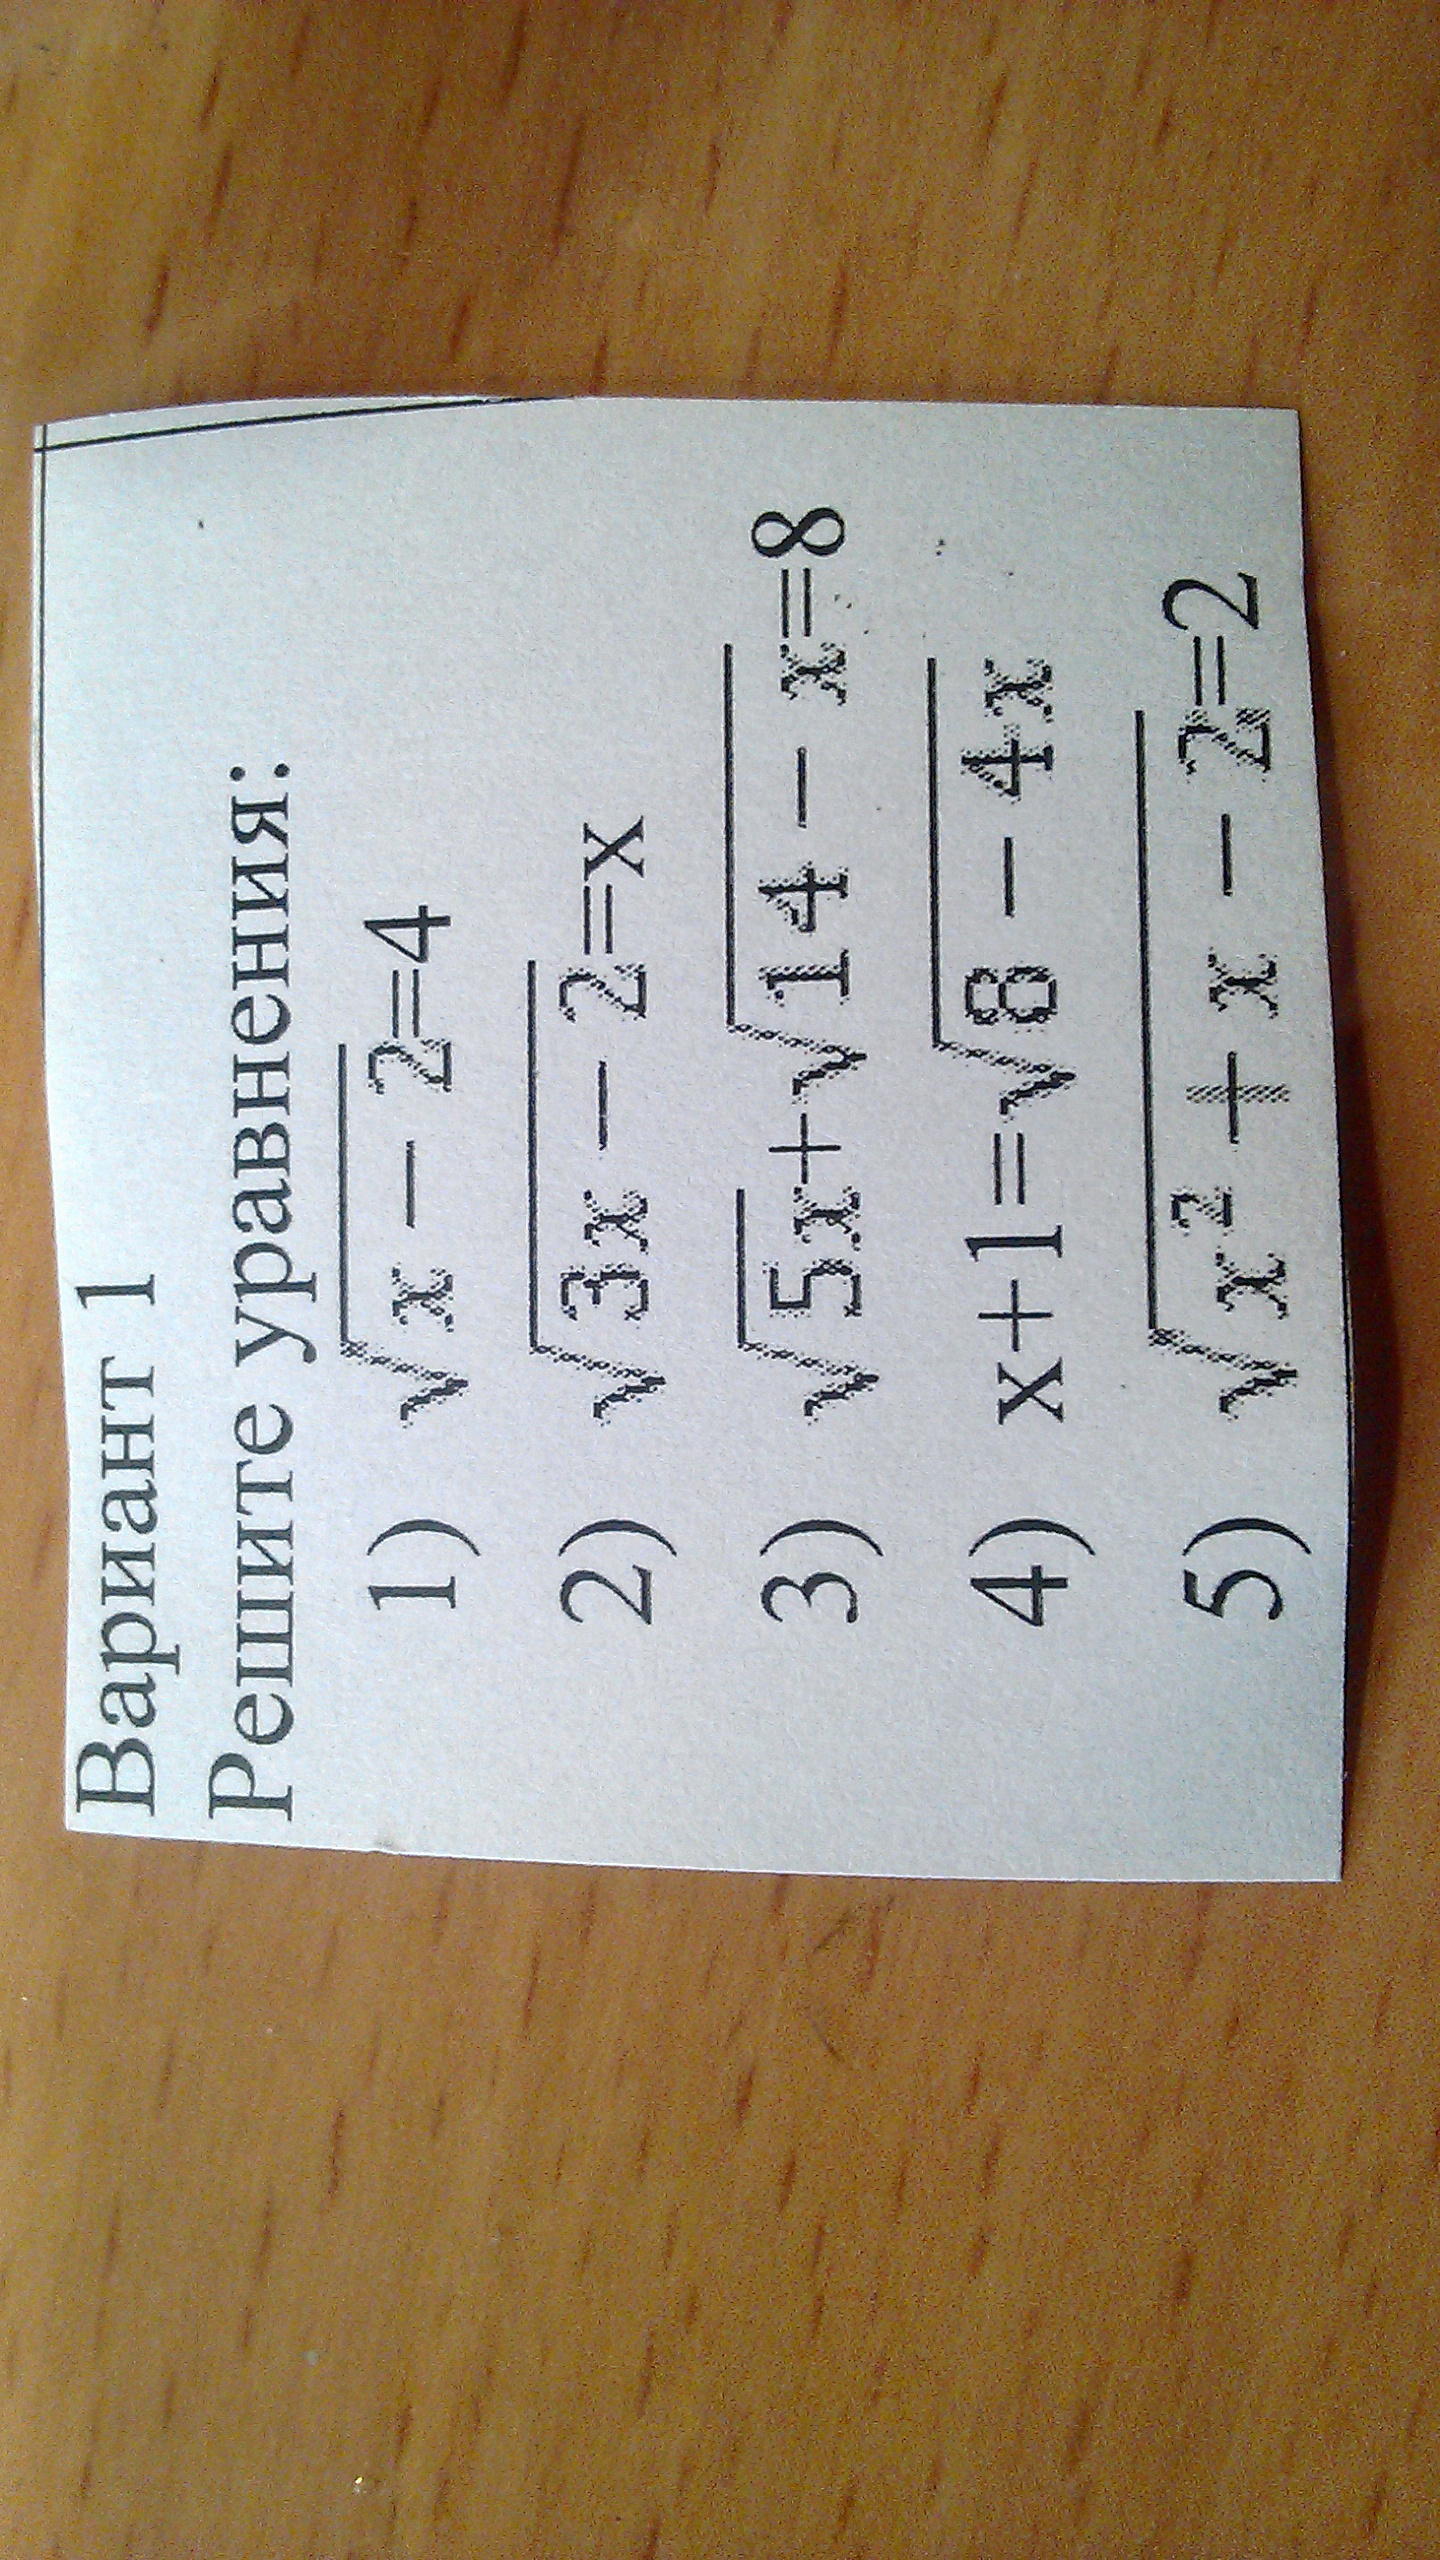 Вариант 1
Решите уравнения:
1) √x − 2=4
2) √3x − 2=x
3) √5x+√14 − x=8
4) x+1=√8 − 4x
5) √x² + x − 2=2